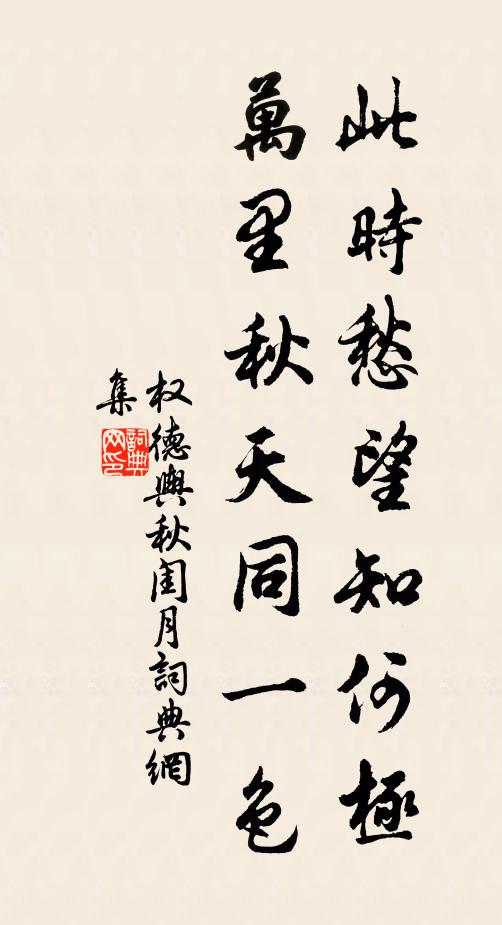 此時愁望知何極
萬里秋天同一色
权德與秋闺月詞典網
集
詞典
网印